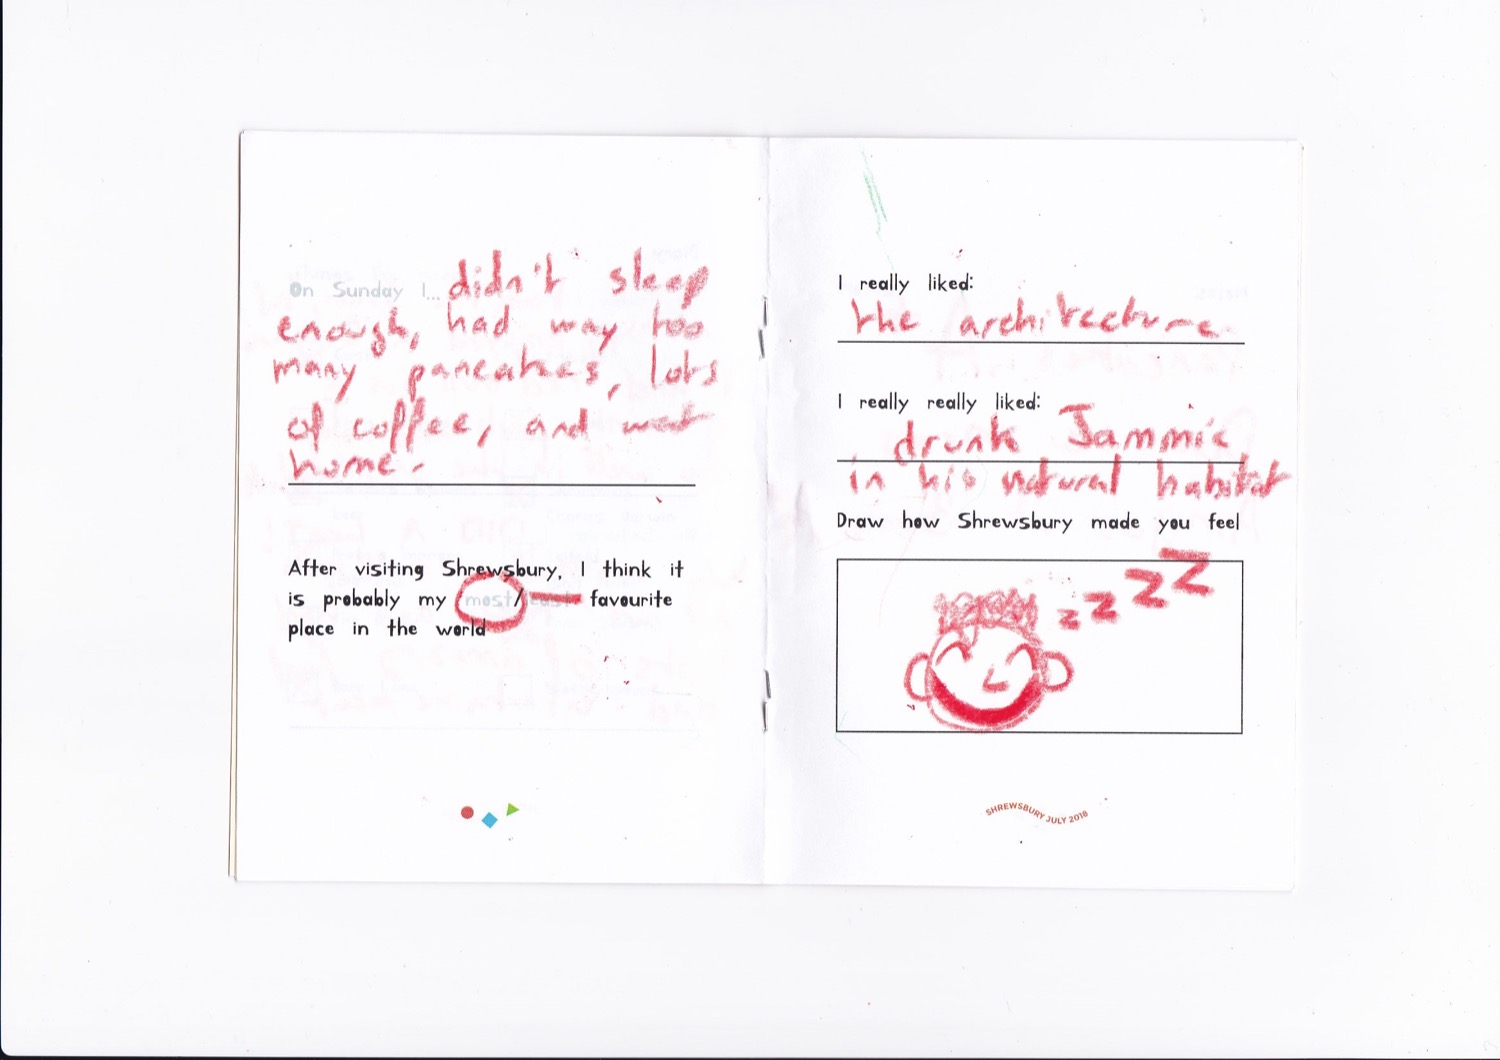 On Sunday I... didn't sleep
enough, had way too
many pancakes, lots
of coffee, and went
home.
After visiting Shrewsbury, I think it
is probably my most/least favourite
place in the world
I really liked:
the architecture
I really really liked:
drunk Jammie
in his natural habitat
Draw how Shrewsbury made you feel
z z z z
SHREWSBURY JULY 2018